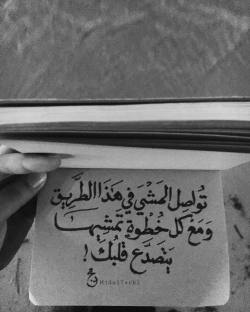 تُواصِل المَشْيَ في هَذا الطَّريق
وَمَعَ كُل خُطْوةٍ تَمْشيها
يَتَصَدَّع قَلْبُكَ!